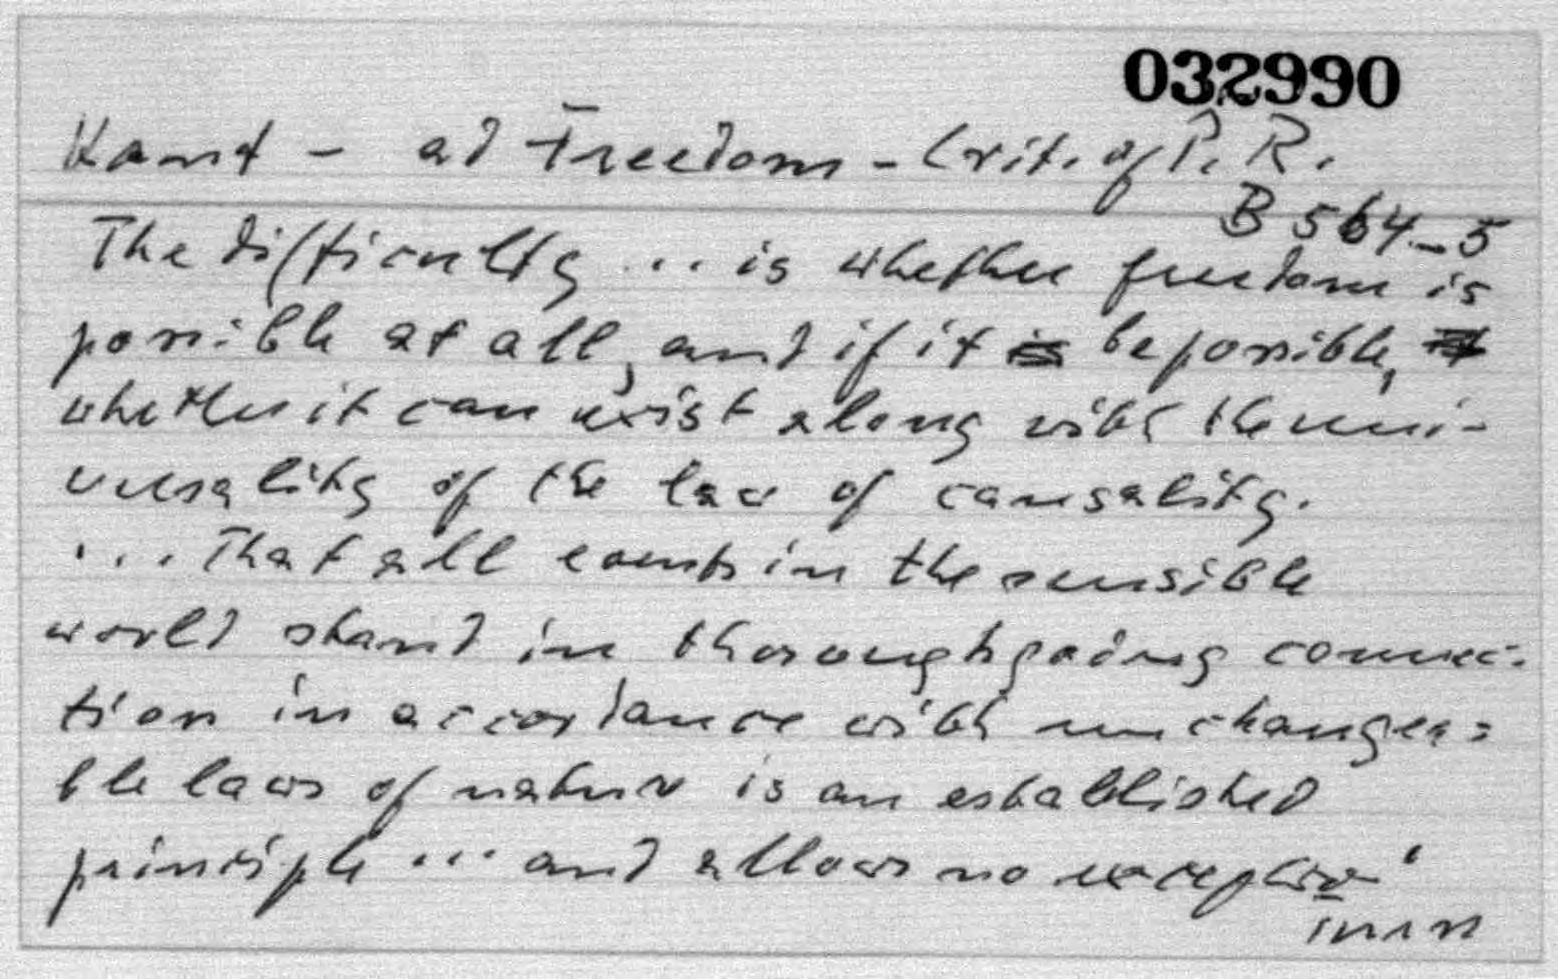 032990
Kant - ad Freedom - Crit. of P. R.
B 564-5
The difficulty ... is whether freedom is
possible at all, and if it is be possible,
whether it can exist along with the uni-
versality of the law of causality.
... That all events in the sensible
world stand in thoroughgoing connec-
tion in accordance with unchangea-
ble laws of nature is an established
principle ... and allows no exception'